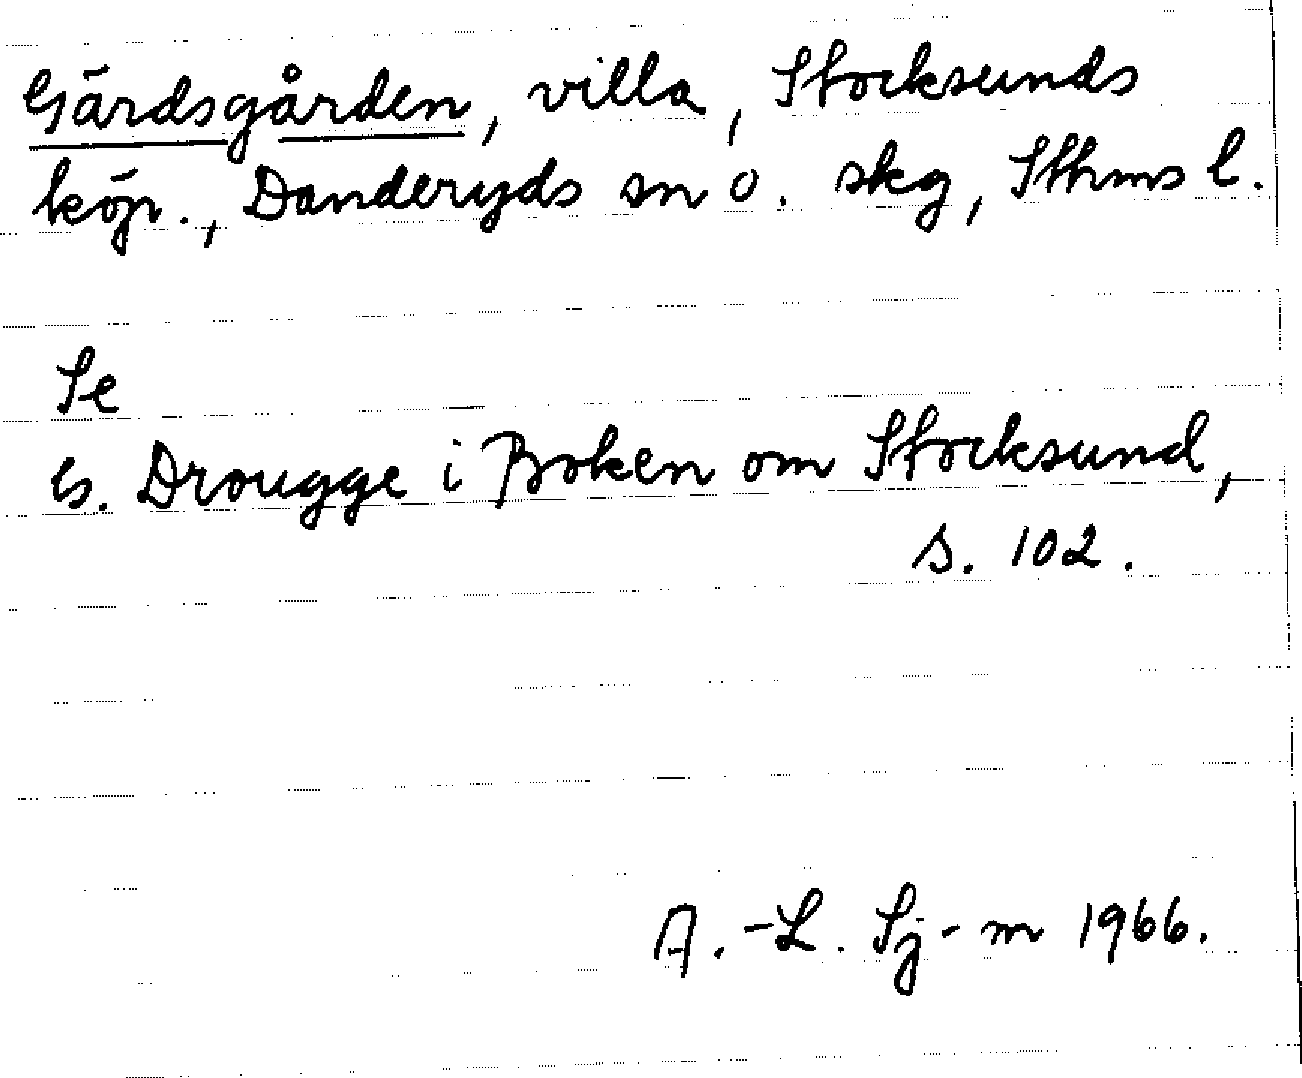 Gärdsgården, villa, Stocksunds
köp., Danderyds sn o. skg, Sthms l.
Se
G. Drougge i Boken om Stocksund,
s. 102.
A.-L. Sj-m 1966.